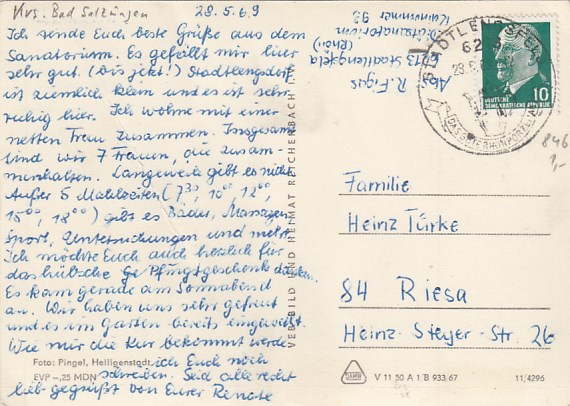 Krs. Bad Salzungen
28.5.69
Ich sende Euch beste Grüße aus dem
Sanatorium. Es gefällt mir hier
sehr gut. (Bis jetzt!) Stadtlengsfeld
ist ziemlich klein und es ist sehr
ruhig hier. Ich wohne mit einer
netten Frau zusammen. Insgesamt
sind wir 7 Frauen, die zusam-
menhalten. Langeweile gibt es nicht.
Außer 5 Mahlzeiten (7³⁰, 10⁰⁰ 12⁰⁰,
15⁰⁰, 18⁰⁰) gibt es Bäder, Massagen,
Sport, Untersuchungen und mehr.
Ich möchte Euch auch herzlich für
das hübsche Pfingstgeschenk danken.
Es kam gerade am Sonnabend
an. Wir haben uns sehr gefreut
und es im Garten bereits eingeweiht.
Wie mir die Kur bekommt werde
ich Euch noch
schreiben. Seid alle recht
lieb gegrüßt von Eurer Renate
Foto: Pingel, Heiligenstadt
EVP –,25 MDN
VEB BILD UND HEIMAT REICHENBACH I. V.
Abs.
R. Figas
6212 Stadtlengsfeld
(Rhön)
Diätsanatorium
Kurnummer 93
STADTLENGSFELD
DEUTSCHE
DEMOKRATISCHE REPUBLIK
10
846
1,-
Familie
Heinz Türke
84 Riesa
Heinz-Steyer-Str. 26
V 11 50 A 1 B 933 67
11/4296